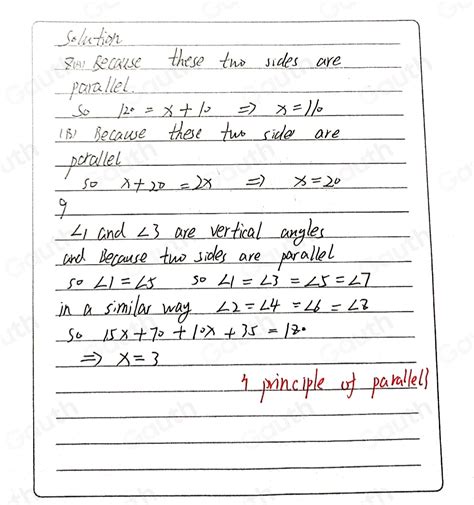 Solution
8(A) Because these two sides are
parallel.
So 120 = x + 10 => x = 110
(B) Because these two side are
parallel
so x + 20 = 2x => x = 20
9
∠1 and ∠3 are vertical angles
and Because two sides are parallel
so ∠1 = ∠5 so ∠1 = ∠3 = ∠5 = ∠7
in a similar way ∠2 = ∠4 = ∠6 = ∠8
So 15x + 70 + 10x + 35 = 180
=> x = 3
principle of parallels